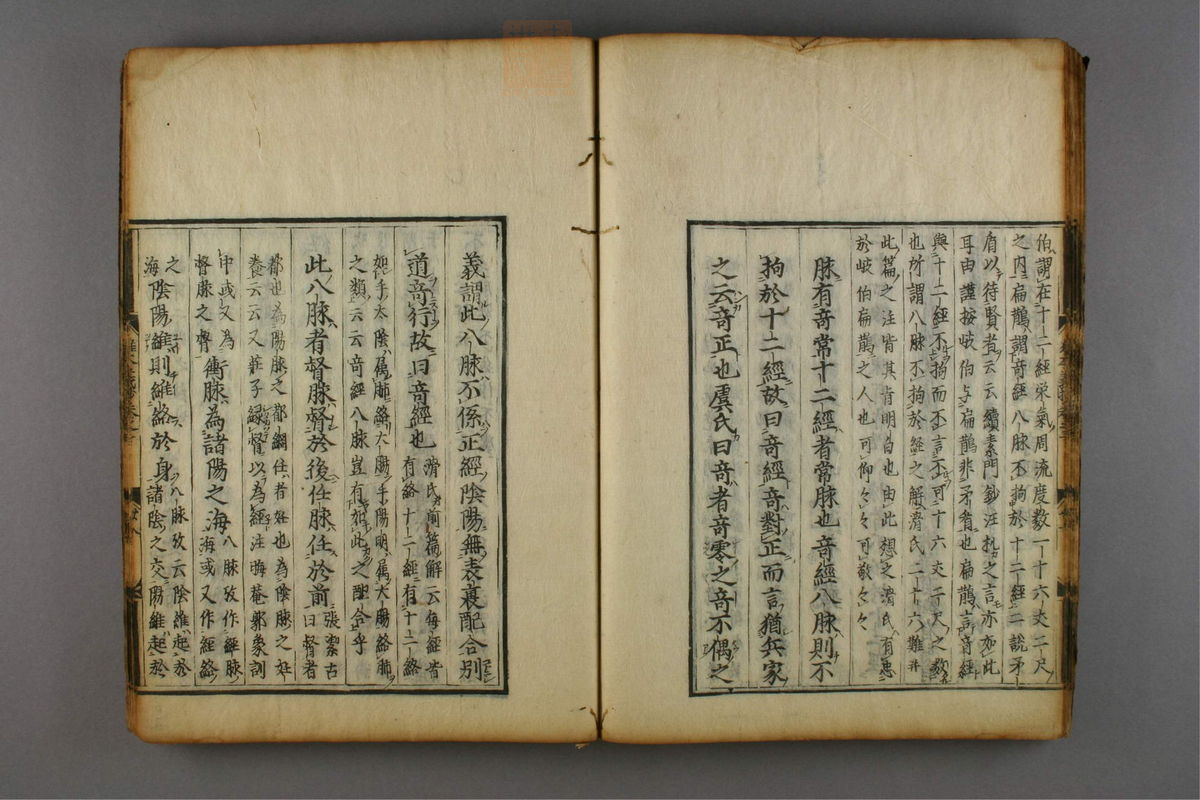 伯謂在十二經栄氣周流度数一十六丈二尺
之内扁鵲謂竒經八脉不拘於十二經二說矛
盾以待賢者云云續素問鈔汪机之言亦如此
耳由謹按岐伯与扁鵲非矛盾也扁鵲言竒經
與十二經不拘而不言不可十六丈二尺之数
也所謂八脉不拘於經之解滑氏二十六難井
此篇之注皆其肯明白也由此想之滑氏有思
於岐伯扁鵲之人也可仰々々可敬々々
脉有竒常十二經者常脉也竒經八脉則不
拘於十二經故曰竒經竒對正而言猶兵家
之云竒正也虞氏曰竒者竒零之竒不偶之
義謂此八脉不係正經陰陽無表裏配合別
道竒行故曰竒經也
滑氏前篇解云每經皆
有絡十二經有十二絡
如手太陰属肺絡大膓手陽明属大膓絡肺
之類云云竒經八脉豈有如此之配合乎
此八脉者督脉督於後任脉任於前
張潔古
曰督者
都也為陽脉之都綱任者妊也為陰脉之妊
養云云又莊子縁督以為經注晦菴郭象訓
中或又為
督脉之督
衝脉為諸陽之海
八脉攷作經脉
海或又作經絡
之
海
陰陽維則維絡於身
八脉攷云陰維起於
諸陰之交陽維起於